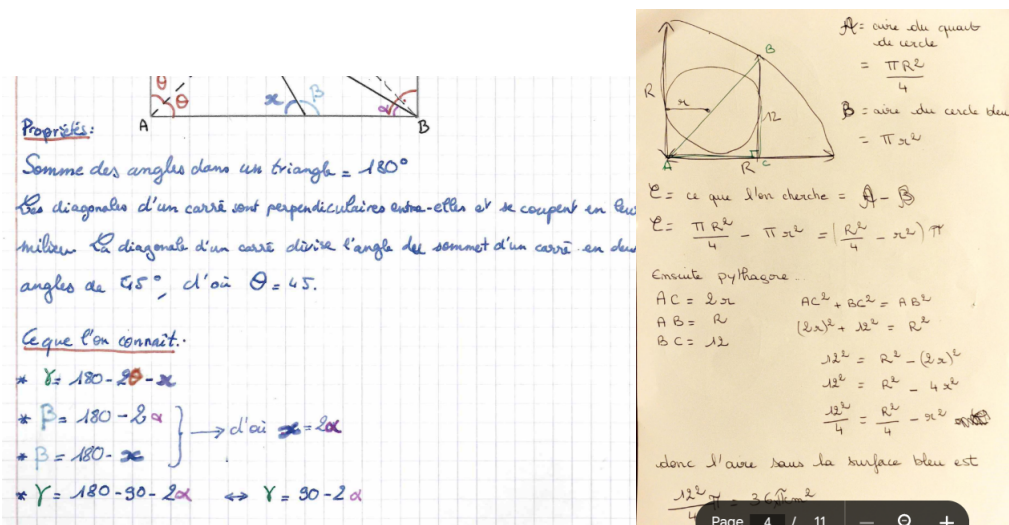 θ
θ
x
β
α
A
B
Propriétés:
Somme des angles dans un triangle = 180°
Les diagonales d'un carré sont perpendiculaires entre-elles et se coupent en leur
milieu. La diagonale d'un carré divise l'angle du sommet d'un carré en deux
angles de 45°, d'où θ = 45.
Ce que l'on connait:
* γ = 180 - 2θ - x
* β = 180 - 2α
d'où x = 2α
* β = 180 - x
* γ = 180 - 90 - 2α ⇔ γ = 90 - 2α
B
R
r
12
A
R
C
A = aire du quart
de cercle
= πR²/4
B = aire du cercle bleu
= πr²
C = ce que l'on cherche = A - B
C = πR²/4 - πr² = (R²/4 - r²)π
Ensuite pythagore...
AC = 2r AC² + BC² = AB²
AB = R (2r)² + 12² = R²
BC = 12
12² = R² - (2r)²
12² = R² - 4r²
12²/4 = R²/4 - r²
donc l'aire sans la surface bleu est
12²/4 π = 36πm²
Page 4 / 11 − +